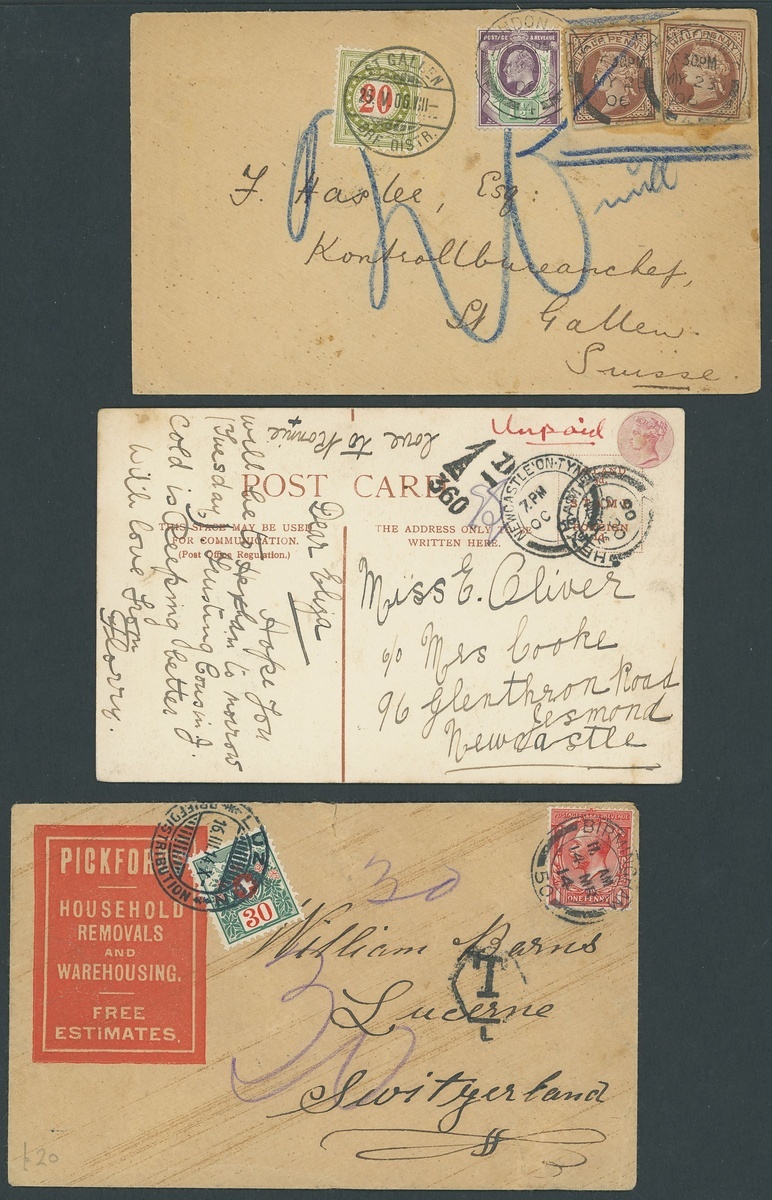 ST GALLEN
20
BRF. DISTR.
LONDON
POSTAGE & REVENUE
HALF PENNY
HALF PENNY
5.30PM
5.30PM
MY 23
06
06
F. Haslee, Esq
Kontrollbureauchef,
St Gallen.
Suisse.
Unpaid
love to Ronnie
POST CARD
THIS SPACE MAY BE USED
FOR COMMUNICATION.
(Post Office Regulation.)
THE ADDRESS ONLY TO BE
WRITTEN HERE.
360
NEWCASTLE-ON-TYNE
7.PM
OC
Dear Eliza
Hope you
will be to morrow
(Tuesday) Trusting Cousin J.
cold is keeping better
With love from
Florry.
Miss E. Oliver
c/o Mrs Cooke
96 Glenthron Road
Jesmond
Newcastle
PICKFOR
HOUSEHOLD
REMOVALS
AND
WAREHOUSING.
FREE
ESTIMATES.
LUZERN
16.III.14
30
BIRMINGHAM
14
ONE PENNY
50
30
T
L
William Barns
Lucerne
Switzerland
30
20